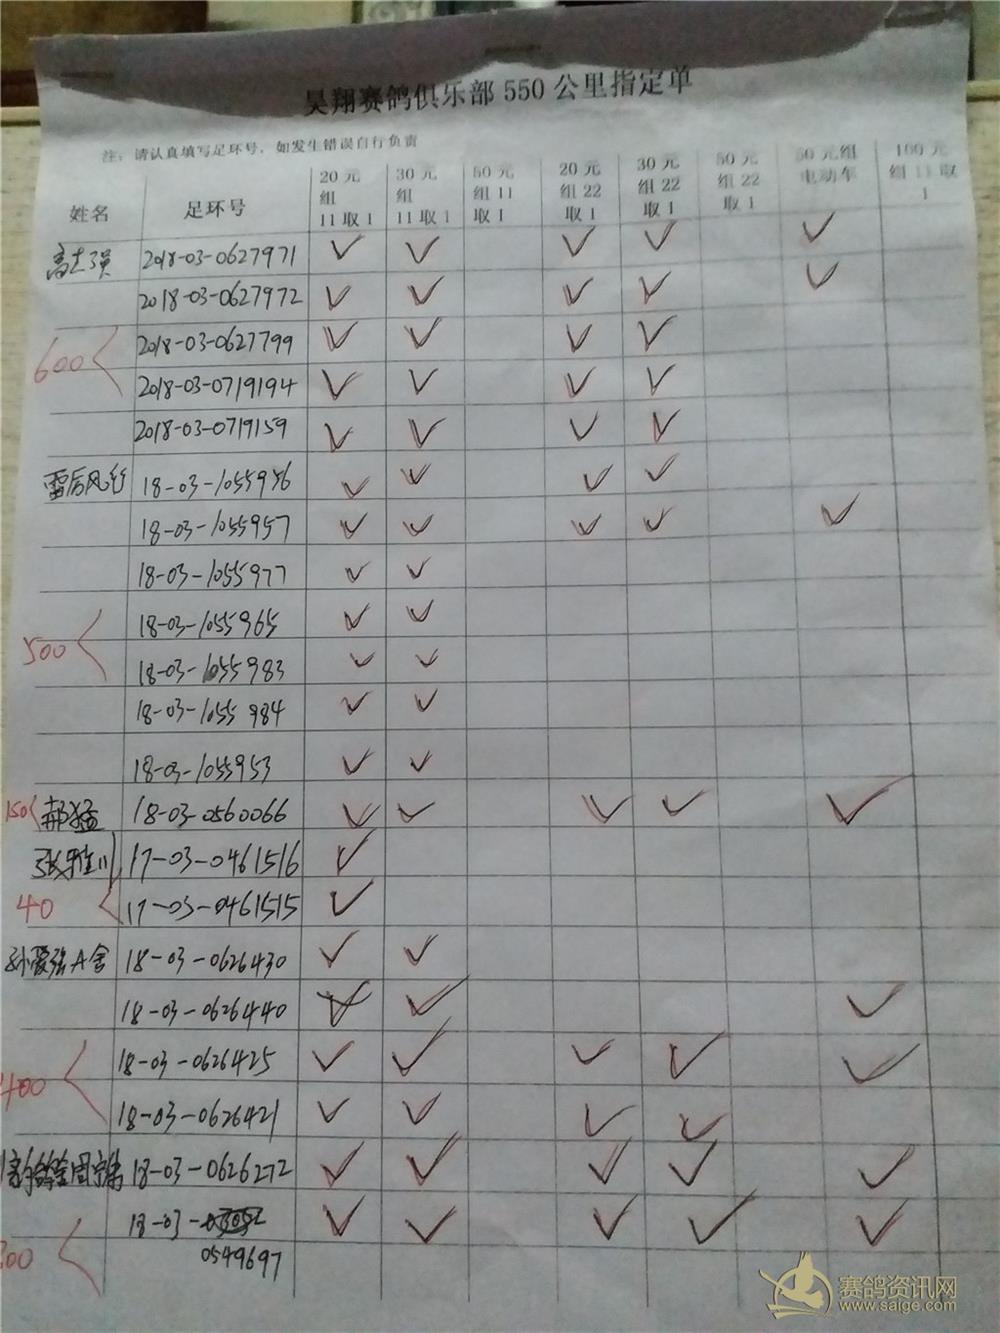 昊翔赛鸽俱乐部 550 公里指定单
注：请认真填写足环号，如发生错误自行负责
姓名 足环号 20 元组 11 取 1 30 元组 11 取 1 50 元组 11 取 1 20 元组 22 取 1 30 元组 22 取 1 50 元组 22 取 1 50 元组电动车 100 元组 11 取 1
高志强 2018-03-0627971 ✓ ✓ ✓ ✓ ✓
2018-03-0627972 ✓ ✓ ✓ ✓ ✓
2018-03-0627799 ✓ ✓ ✓ ✓
600
2018-03-0719194 ✓ ✓ ✓ ✓
2018-03-0719159 ✓ ✓ ✓ ✓
18-03-1055956 ✓ ✓ ✓ ✓
18-03-1055957 ✓ ✓ ✓ ✓ ✓
18-03-1055977 ✓ ✓
18-03-1055965 ✓ ✓
500
18-03-1055983 ✓ ✓
18-03-1055984 ✓ ✓
18-03-1055953 ✓ ✓
150 郝猛 18-03-0560066 ✓ ✓ ✓ ✓ ✓
张雅川 17-03-0461516 ✓
40 17-03-0461515 ✓
孙爱强A舍 18-03-0626430 ✓ ✓
18-03-0626440 ✓ ✓ ✓
18-03-0626425 ✓ ✓ ✓ ✓ ✓
400
18-03-0626421 ✓ ✓ ✓ ✓
18-03-0626272 ✓ ✓ ✓ ✓ ✓
18-03- ✓ ✓ ✓ ✓ ✓
300 0549697
赛鸽资讯网
www.saige.com